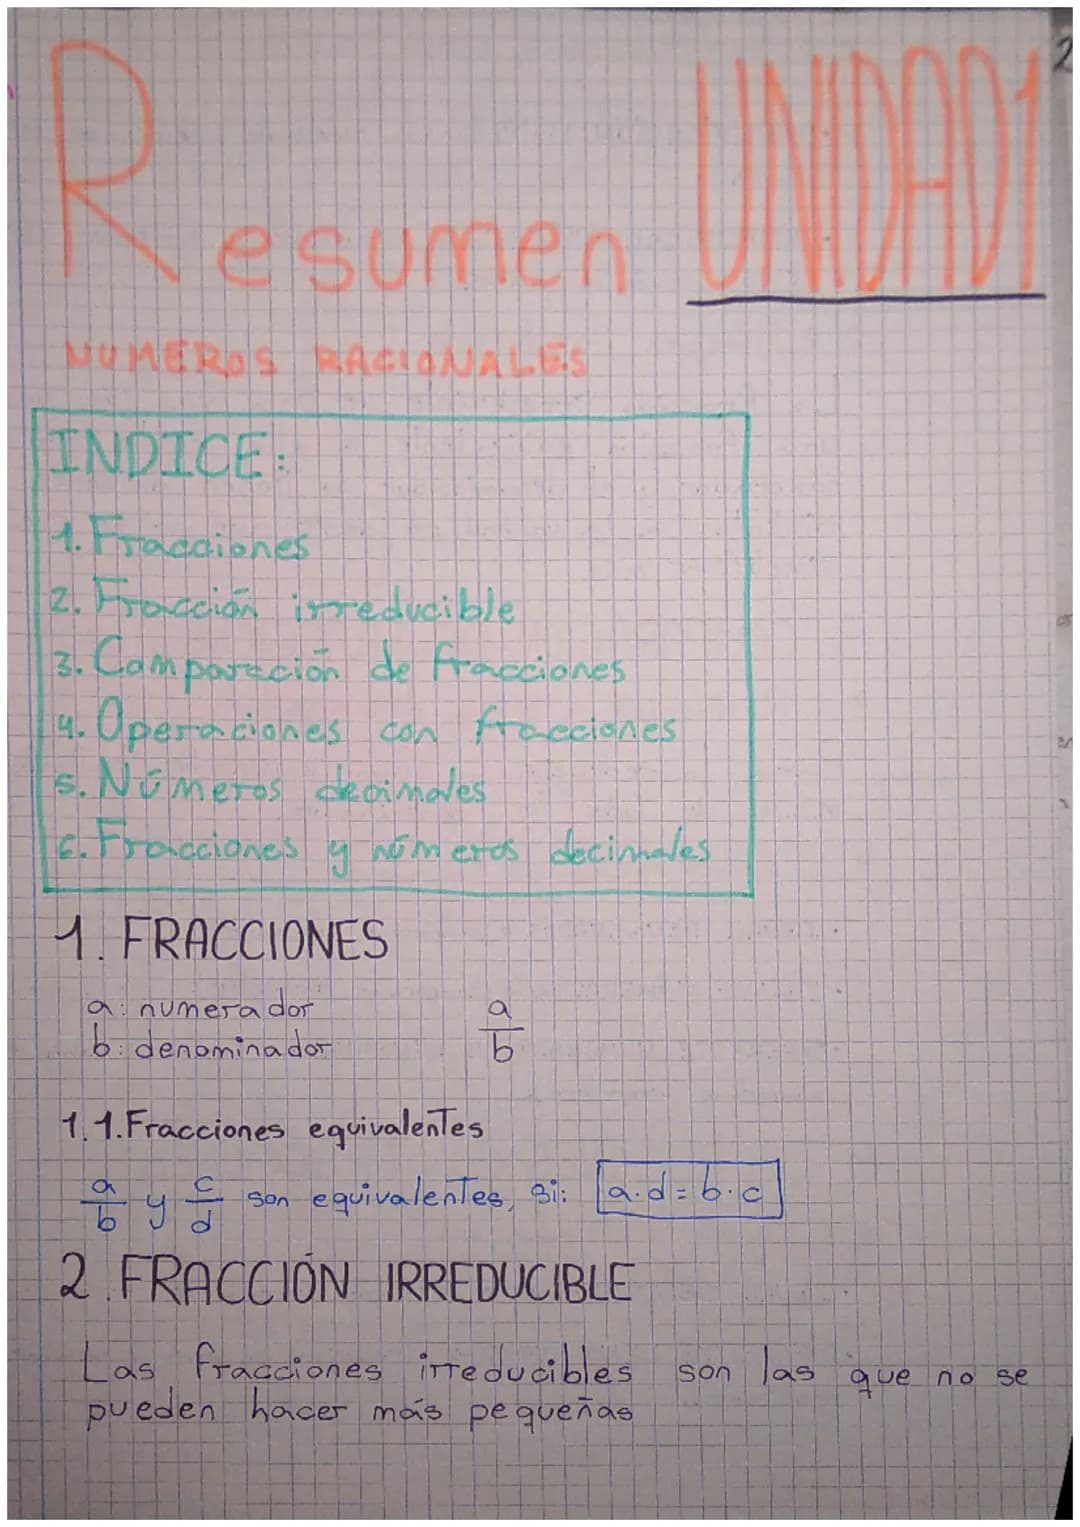 Resumen UNIDAD1
NUMEROS RACIONALES
INDICE:
1. Fracciones
2. Fracción irreducible
3. Comparación de fracciones
4. Operaciones con fracciones
5. Números decimales
6. Fracciones y números decimales
1. FRACCIONES
a: numerador
b: denominador
a/b
1.1. Fracciones equivalentes
a/b y c/d son equivalentes, si: a·d=b·c
2. FRACCIÓN IRREDUCIBLE
Las fracciones irreducibles son las que no se
pueden hacer más pequeñas